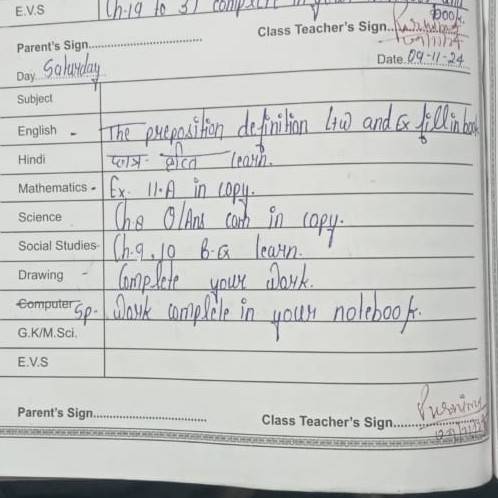 E.V.S Ch-19 to 31 complete in your and
book.
Parent's Sign. Class Teacher's Sign.
Day Saturday Date 09-11-24
Subject
English - The preposition definition L+w and Ex fill in book
Hindi learn.
Mathematics - Ex. 11.A in copy.
Science Ch-8 Q/Ans com in copy.
Social Studies Ch-9, 10 B-Ex learn.
Drawing - Complete your Work.
Computer Sp- Work complete in your notebook.
G.K/M.Sci.
E.V.S
Parent's Sign. Class Teacher's Sign.